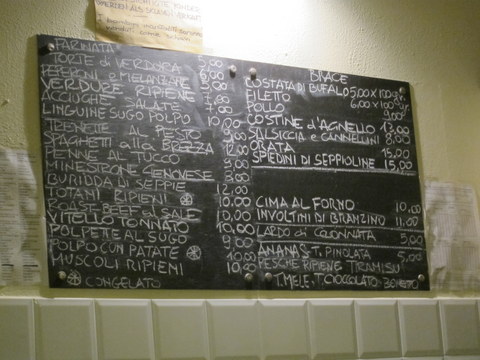 FARINATA* 5,00
TORTE di VERDURA 5,00
PEPERONI e MELANZANE
VERDURE RIPIENE
ACCIUGHE SALATE
LINGUINE SUGO POLPO 10,00
AL PESTO 9,00
SPAGHETTI alla BREZZA 12,00
PENNE AL TUCCO
MINESTRONE GENOVESE
BURIDDA DI SEPPIE 12,00
TOTANI RIPIENI 10,00
ROAST-BEEF al SALE 10,00
VITELLO TONNATO 10,00
POLPETTE AL SUGO 9,00
POLPO CON PATATE 10,00
MUSCOLI RIPIENI 10,00
CONGELATO
BRACE
COSTATA DI BUFALO 5,00 x 100gr
FILETTO 6,00 x 100gr
POLLO 9,00
COSTINE d'AGNELLO 13,00
SALSICCIA e CANNELLINI 8,00
ORATA 15,00
SPIEDINI DI SEPPIOLINE 15,00
CIMA AL FORNO 10,00
INVOLTINI DI BRANZINO 11,00
LARDO di COLONNATA 5,00
ANANAS-T. PINOLATA 5,00
PESCHE RIPIENE TIRAMISU
T. MELE-T. CIOCCOLATO